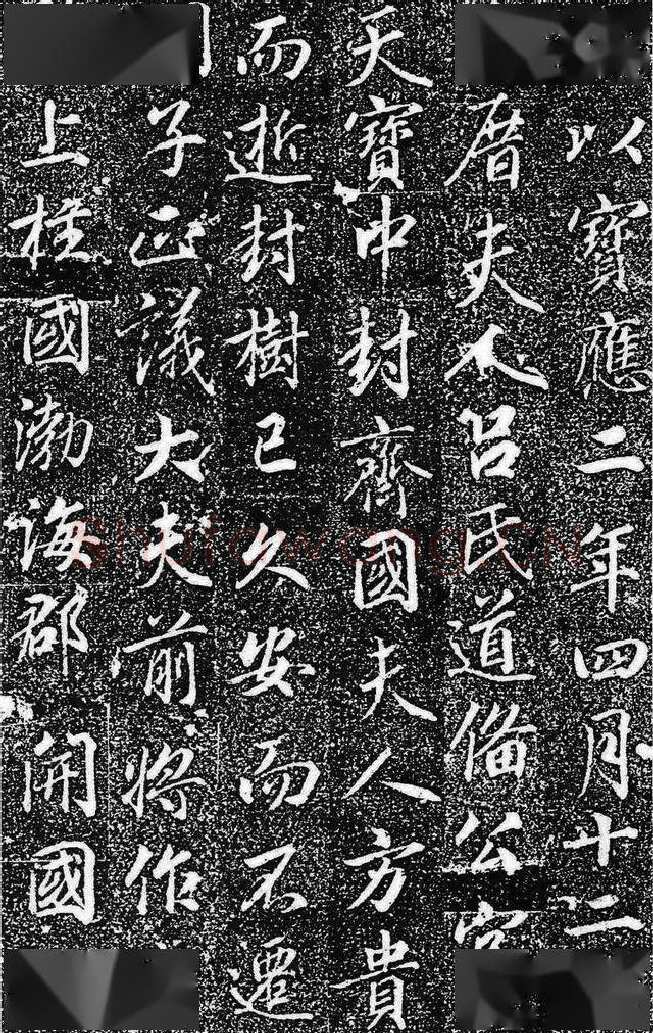 以寶應二年四月十二
厝夫人呂氏道備公宮
天寶中封齊國夫人方貴
而逝封樹已久安而不遷
子正議大夫前將作
上柱國渤海郡開國
Shufawang.CN